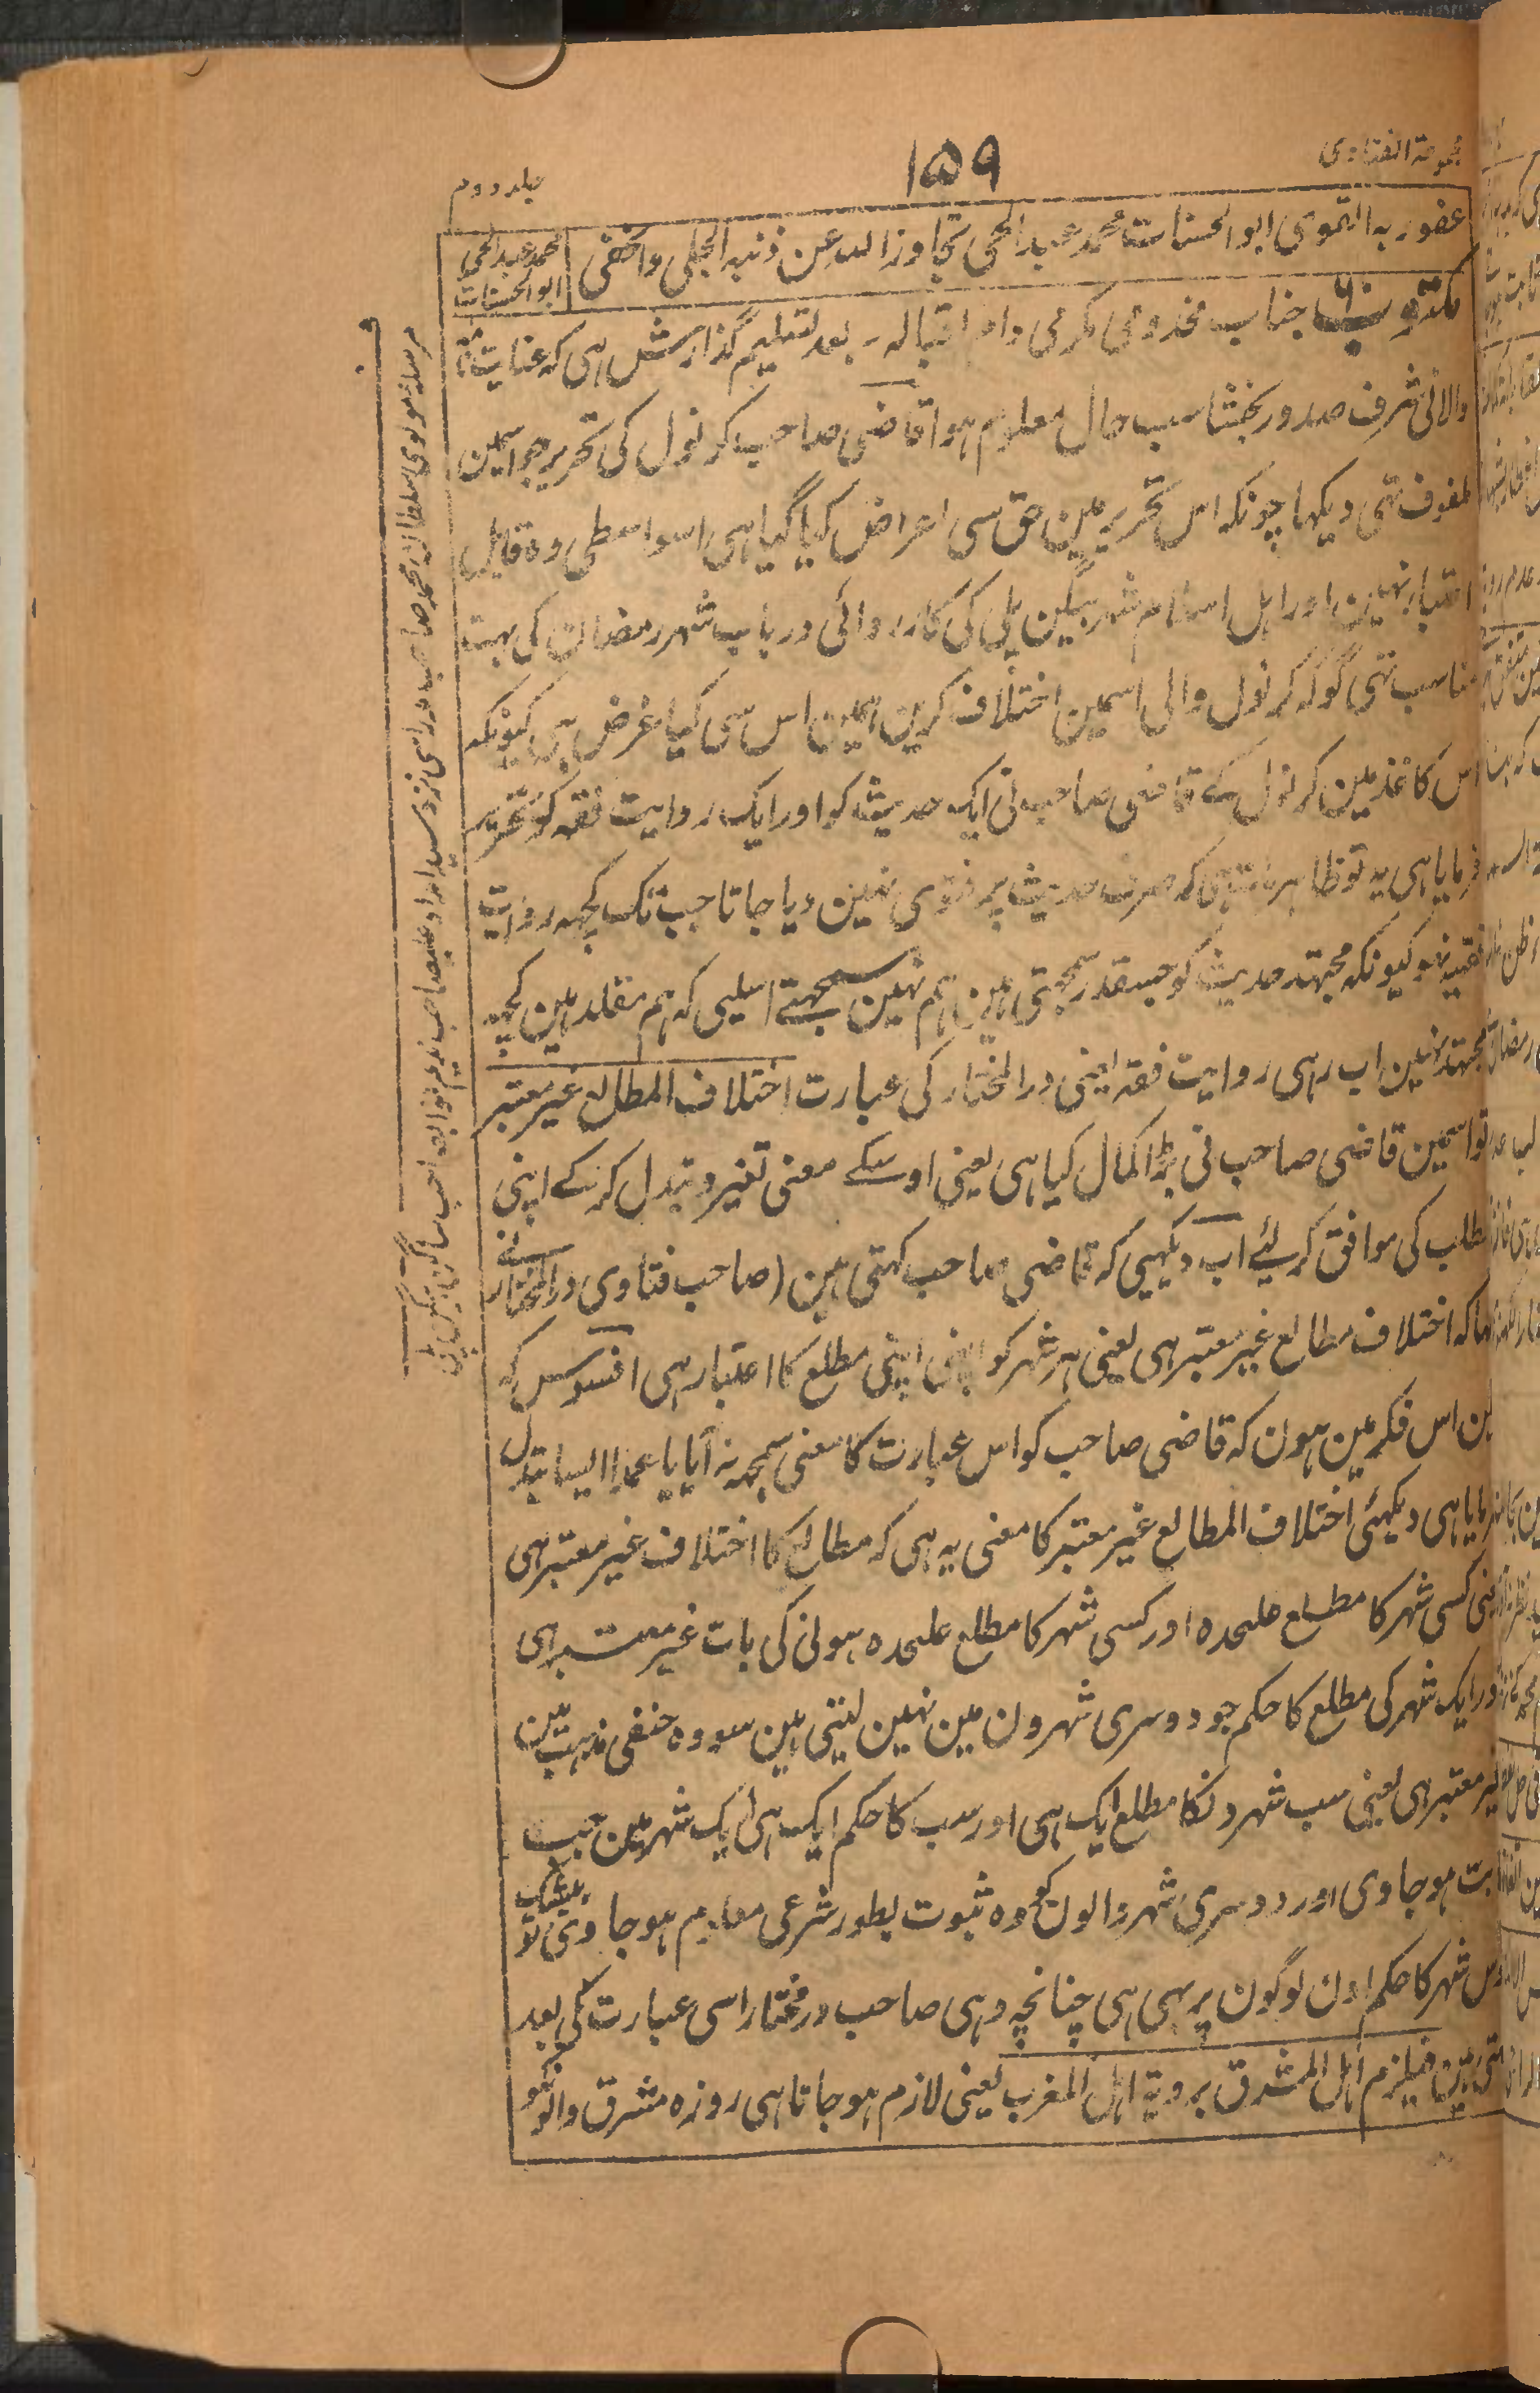 مجموعۃ الفتاوی
۱۵۹
جلد دوم
عفو ربہ القوی ابو الحسنات محمد عبد الحی تجاوز اللہ عن ذنبہ الجلی والخفی
محمد عبد الحی ابو الحسنات
مکتوب جناب مخدومی مکرمی دام اقبالہ۔ بعد تسلیم گذارش ہی کہ عنایت نامۂ
والا نی شرف صدور بخشا سب حال معلوم ہوا قاضی صاحب کرنول کی تحریر جو اسمین
ملفوف تہی دیکہا چونکہ اس تحریر مین حق سی اعراض کیا گیا ہی اسواسطی وہ قابل
اعتبار نہین اور اہل اسلام شہر بیگن پلی کی کارروائی در باب شہر رمضان کی بہت
مناسب تہی گو کہ کرنول والی اسمین اختلاف کرین ہمین اس سی کیا غرض ہی کیونکہ
اس کاغذ مین کرنول کے قاضی صاحب نی ایک حدیث کو اور ایک روایت فقہ کو تحریر
فرمایا ہی یہ تو ظاہر بات ہی کہ صرف حدیث پر فتوی نہین دیا جاتا جب تک کچہہ روایت
فقہیہ نہو کیونکہ مجتہد حدیث کو جسقدر سمجہتی ہین ہم نہین سمجہتے اسلیی کہ ہم مقلد ہین کچہہ
مجتہد نہین اب رہی روایت فقہ یعنی در المختار کی عبارت اختلاف المطالع غیر معتبر
تو اسمین قاضی صاحب نی بڑا کمال کیا ہی یعنی اوسکے معنی تغیر و تبدل کر کے اپنی
مطلب کی موافق کر لیئے اب دیکہیی کہ قاضی صاحب کہتی ہین (صاحب فتاوی در المختار نے
کہا کہ اختلاف مطالع غیر معتبر ہی یعنی ہر شہر کو اپنی اپنی مطلع کا اعتبار ہی افسوس کہ
مین اس فکر مین ہون کہ قاضی صاحب کو اس عبارت کا معنی سمجہہ نہ آیا یا عمداً ایسا تبدل
فرمایا ہی دیکہئی اختلاف المطالع غیر معتبر کا معنی یہ ہی کہ مطالع کا اختلاف غیر معتبر ہی
یعنی کسی شہر کا مطلع علیحدہ اور کسی شہر کا مطلع علیحدہ ہونی کی بات غیر معتبر ہی
اور ایک شہر کی مطلع کا حکم جو دوسری شہرون مین نہین لیتی ہین سو وہ حنفی مذہب مین
غیر معتبر ہی یعنی سب شہرونکا مطلع ایک ہی اور سب کا حکم ایک ہی ایک شہر مین جب
ثابت ہو جاوی اور دوسری شہر والون کو وہ ثبوت بطور شرعی معلوم ہو جاوی تو بیشک
اوس شہر کا حکم اون لوگون پر بہی ہی چنانچہ وہی صاحب در مختار اسی عبارت کی بعد
کہتی ہین فیلزم اہل المشرق برویۃ اہل المغرب یعنی لازم ہو جاتا ہی روزہ مشرق والونکو
مرسلۂ مولوی سلطان محمد صاحب مدراسی نزد سید امداد علیصاحب